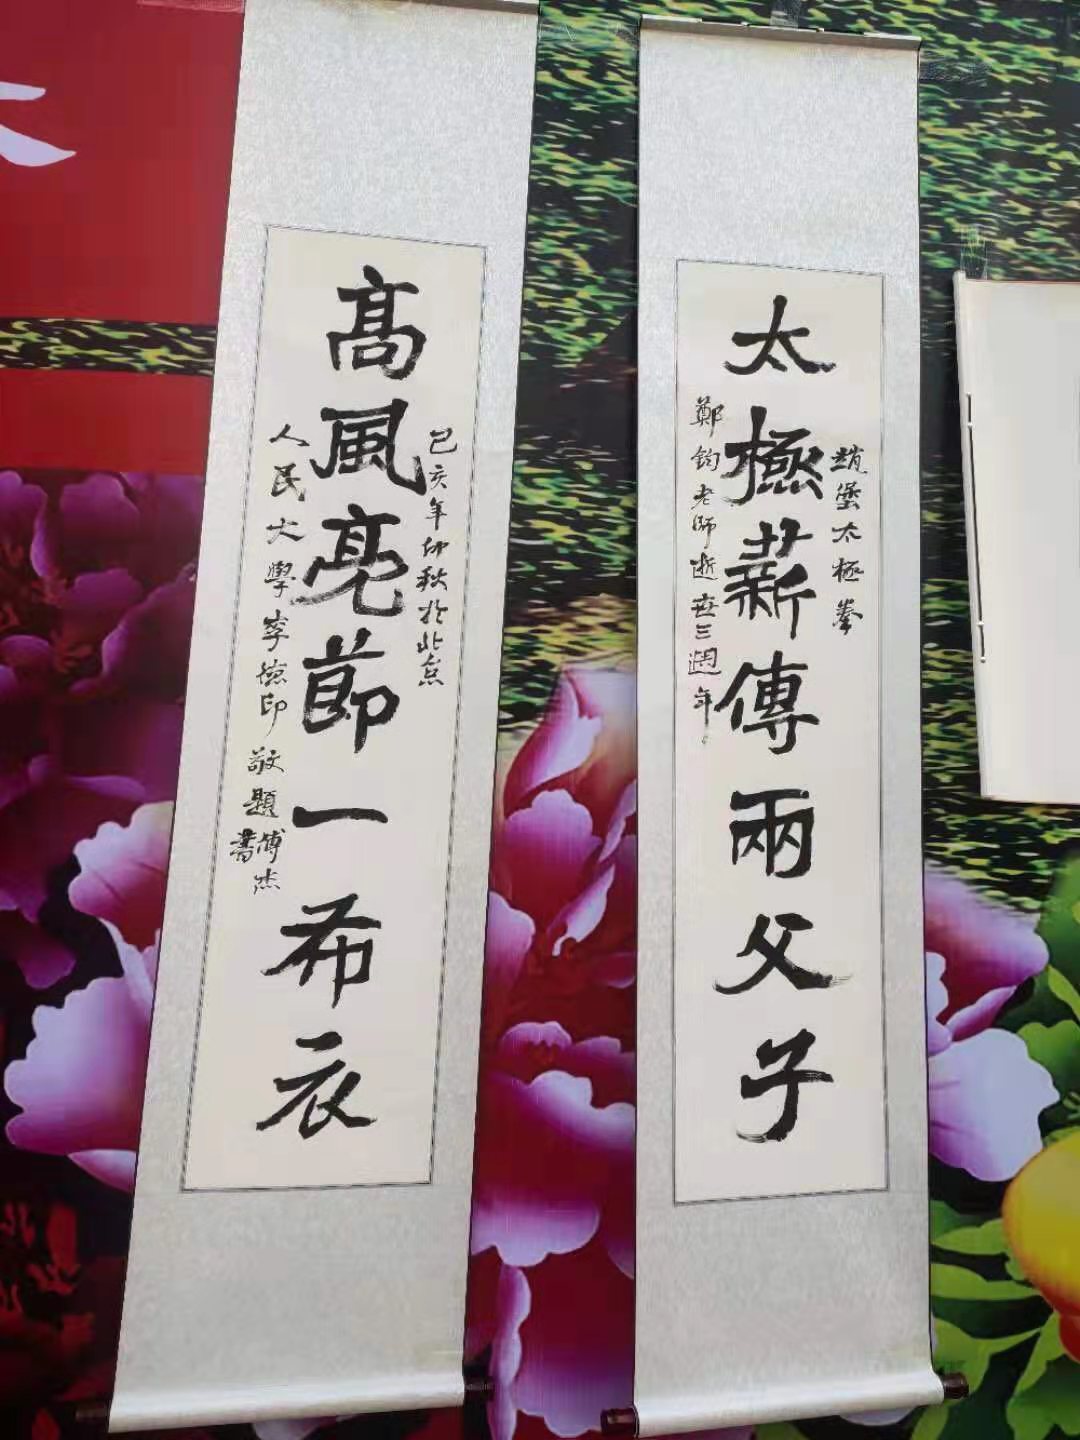 太極薪傳兩父子
趙堡太極拳
鄭鈞老師逝世三週年
高風亮節一布衣
己亥年仲秋於北京
人民大學李德印敬題
傅杰書